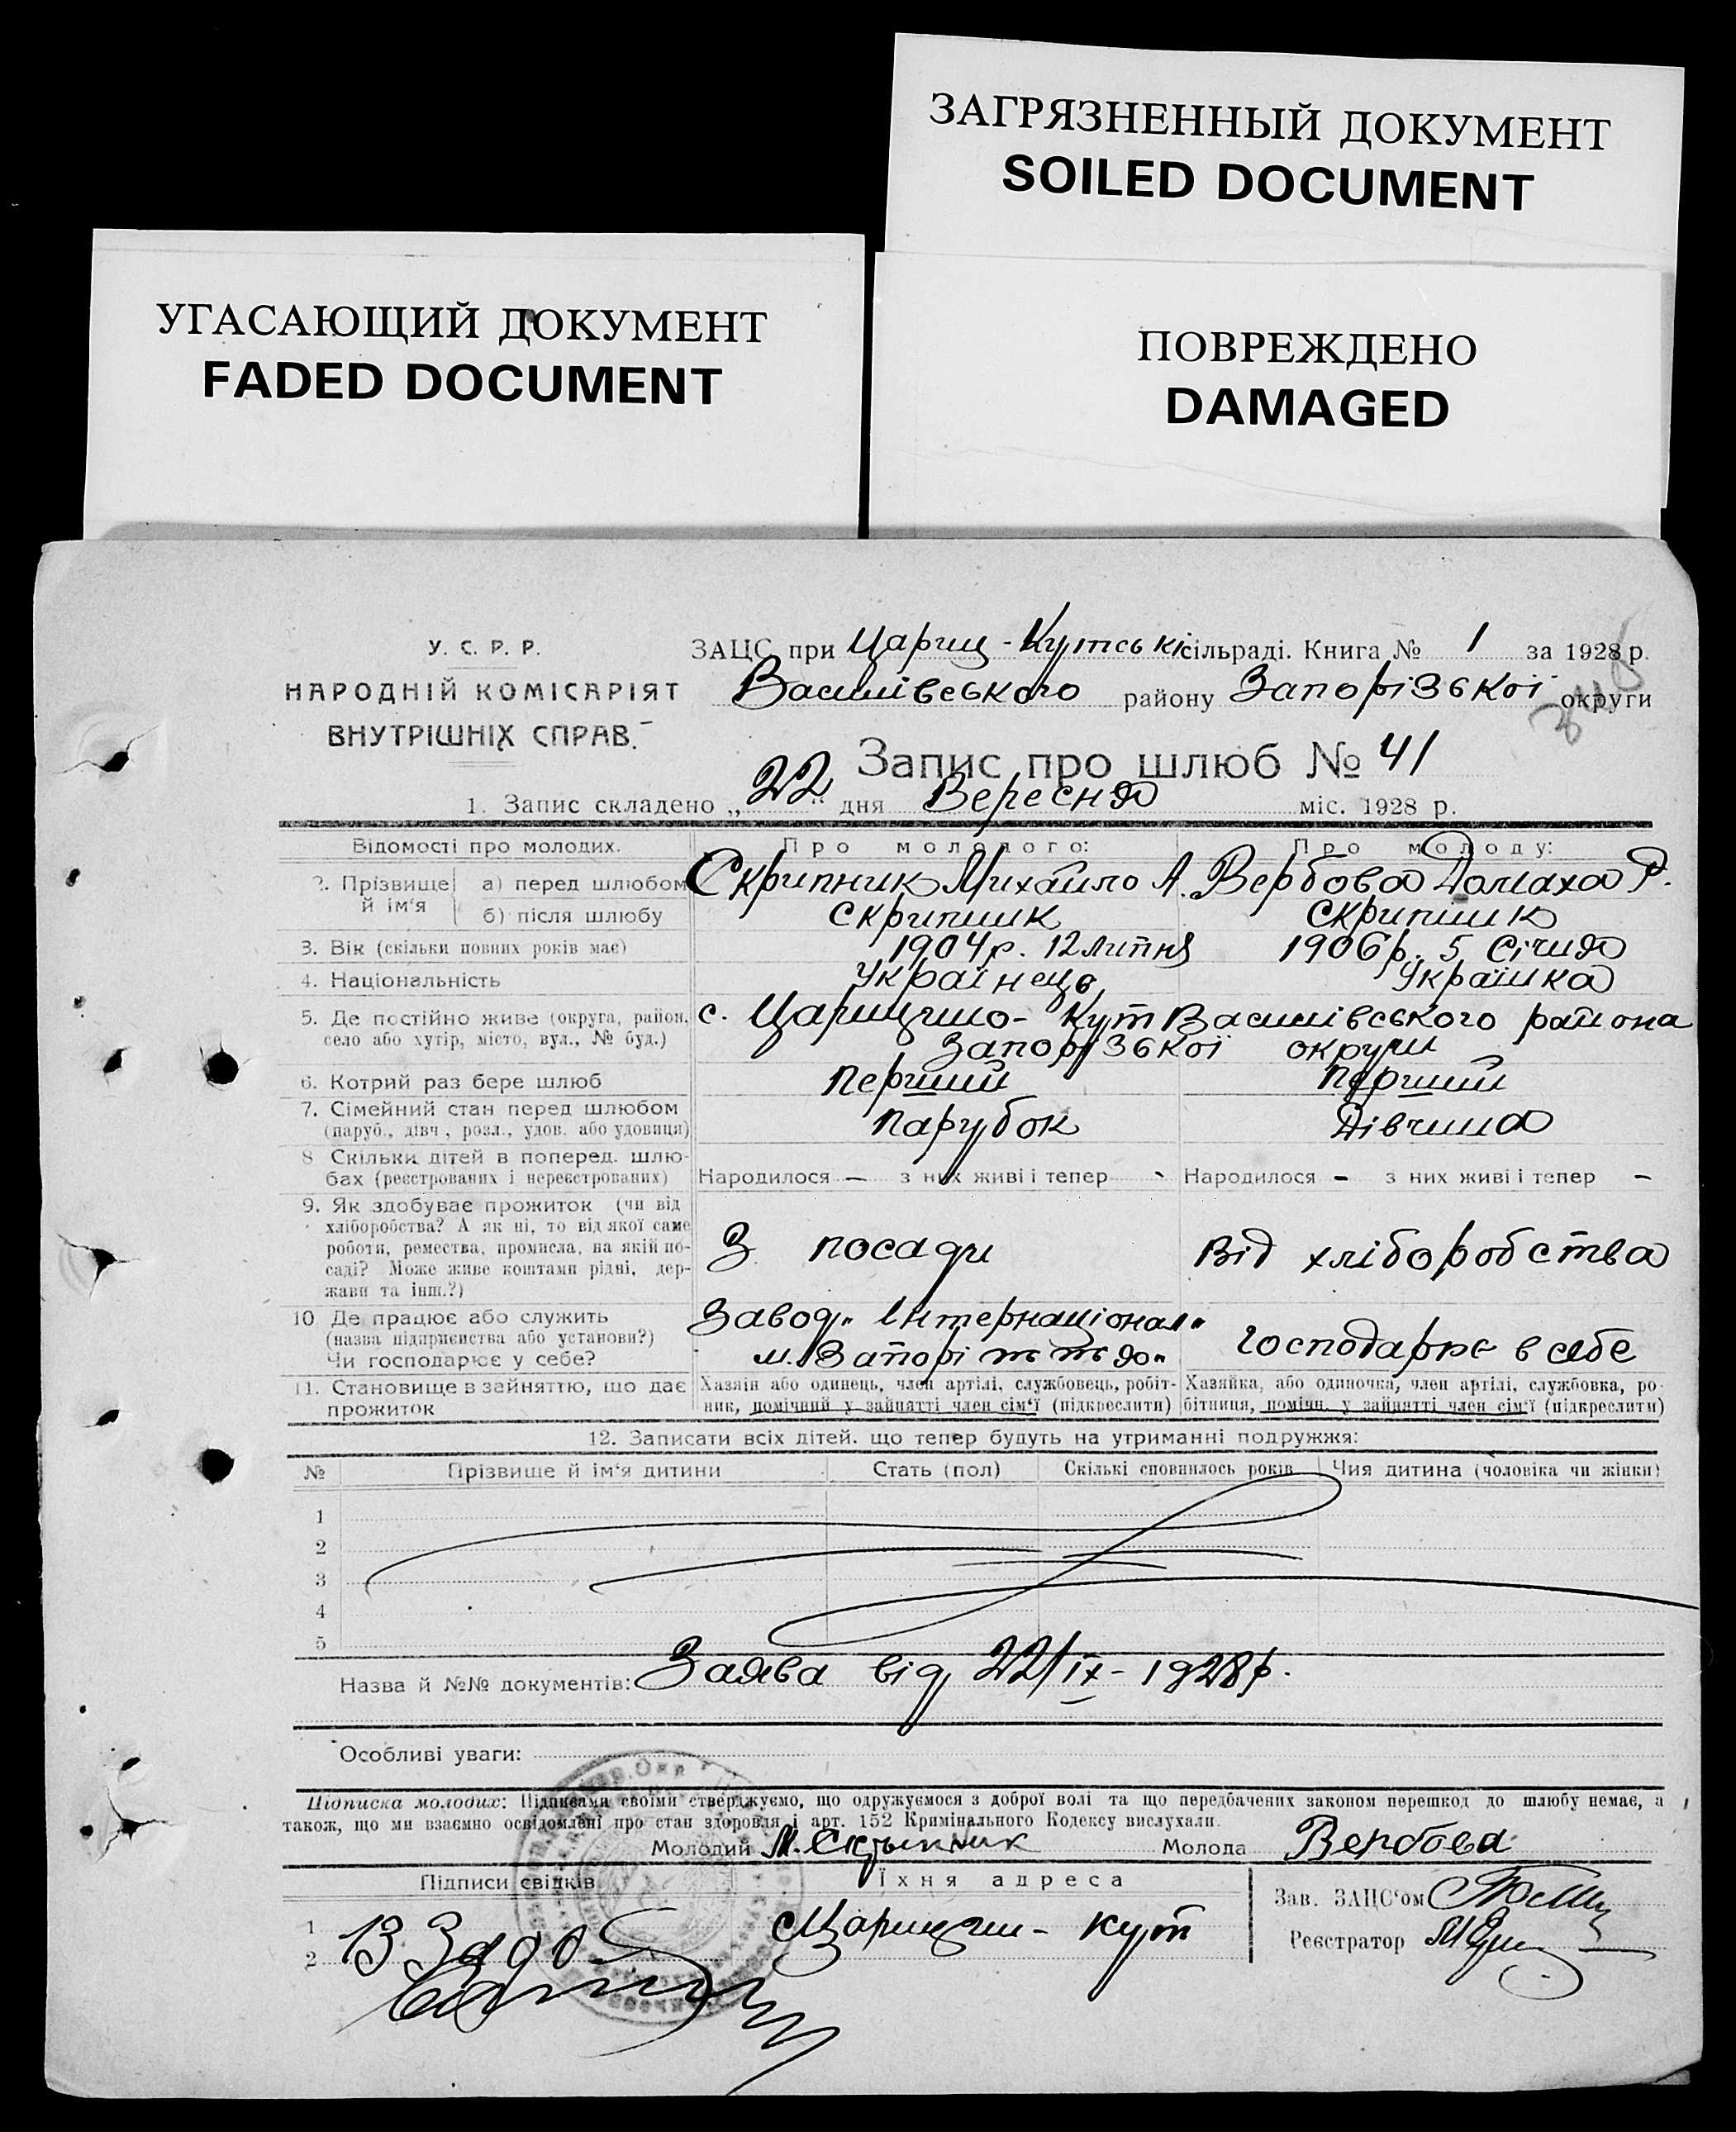 ЗАГРЯЗНЕННЫЙ ДОКУМЕНТ
SOILED DOCUMENT
УГАСАЮЩИЙ ДОКУМЕНТ
FADED DOCUMENT
ПОВРЕЖДЕНО
DAMAGED
У. С. Р. Р.
НАРОДНІЙ КОМІСАРІЯТ
ВНУТРІШНІХ СПРАВ.
ЗАЦС при Цариц-Кутські сільраді. Книга № 1 за 1928 р.
Василівського району Запорізької округи
Запис про шлюб № 41
1. Запис складено „22“ дня Вересня міс. 1928 р.
Відомості про молодих. Про молодого: Про молоду:
2. Прізвище й ім‘я а) перед шлюбом Скрипник Михайло А. Вербова Домаха Р.
б) після шлюбу Скрипник Скрипник
3. Вік (скільки повних років має) 1904 р. 12 Липня 1906 р. 5 Січня
4. Національність Українець Українка
5. Де постійно живе (округа, район, с. Царицино-Кут Василівського района
село або хутір, місто, вул., № буд.) Запорізької округи
6. Котрий раз бере шлюб Перший Перший
7. Сімейний стан перед шлюбом Парубок Дівчина
(паруб., дівч., розл., удов. або удовиця)
8 Скільки дітей в поперед. шлю-
бах (реєстрованих і нереєстрованих) Народилося — з них живі і тепер - Народилося - з них живі і тепер —
9. Як здобуває прожиток (чи від
хліборобства? А як ні, то від якої саме
роботи, ремества, промисла, на якій по- З посади Від хліборобства
саді? Може живе коштами рідні, дер-
жави та інш.?)
10 Де працює або служить Завод „Інтернаціонал“
(назва підприємства або установи?) м. Запоріжжя Господарює в себе
Чи господарює у себе?
11. Становище в зайняттю, що дає Хазяїн або одинець, член артілі, службовець, робіт- Хазяйка, або одиночка, член артілі, службовка, ро-
прожиток ник, помічний у зайнятті член сім‘ї (підкреслити) бітниця, помічн. у зайнятті член сім‘ї (підкреслити)
12. Записати всіх дітей. що тепер будуть на утриманні подружжя:
№ Прізвище й ім‘я дитини Стать (пол) Скількі сповнилось років Чия дитина (чоловіка чи жінки)
1
2
3
4
5
Назва й №№ документів: Заява від 22/ІХ-1928 р.
Особливі уваги:
Підписка молодих: Підписами своїми стверджуємо, що одружуємося з доброї волі та що передбачених законом перешкод до шлюбу немає, а
також, що ми взаємно освідомлені про стан здоровля і арт. 152 Кримінального Кодексу вислухали.
Молодий М. Скрыпник Молода Вербова
Підписи свідків Їхня адреса
Зав. ЗАЦС‘ом
1 Царицин-Кут
Реєстратор
2